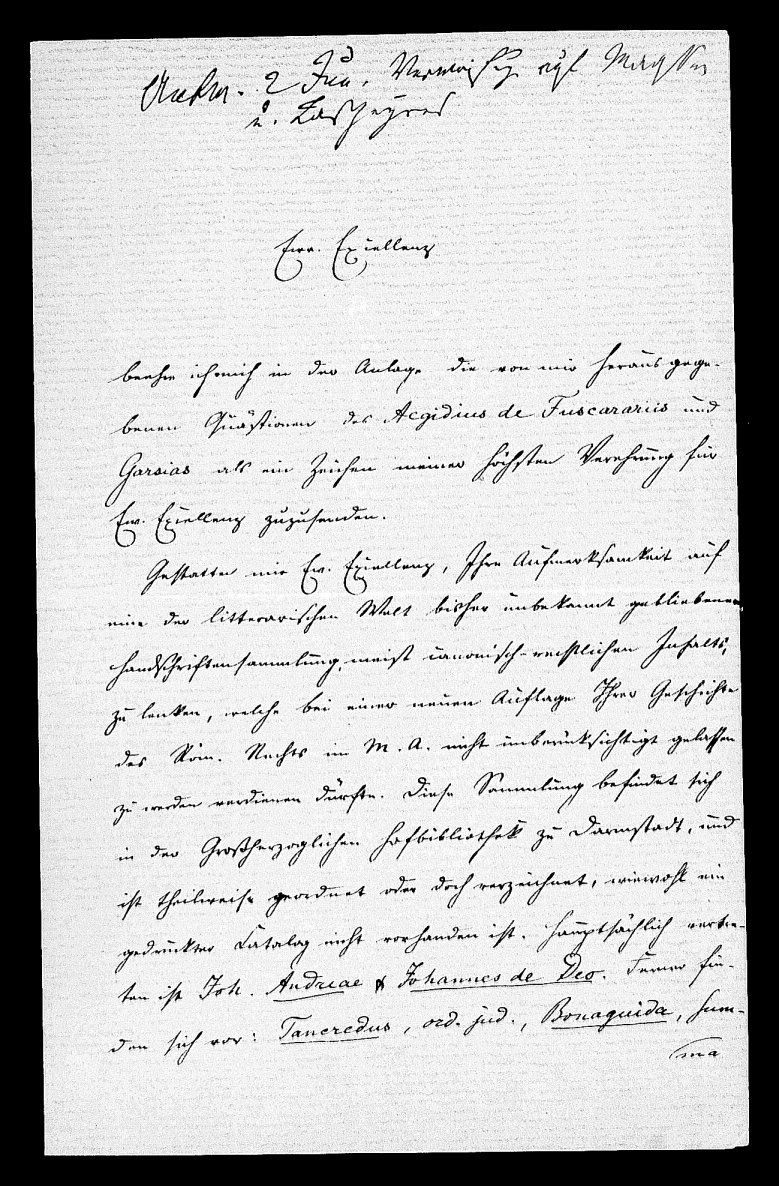 Antw. 2 Jun.
u. Laspeyres
Ew. Excellenz
beehre ich mich in der Anlage die von mir herausgege-
benen Quästionen des Aegidius de Fuscarariis und
Garsias als ein Zeichen meiner höchsten Verehrung für
Ew. Excellenz zuzusenden.
Gestatten mir Ew. Excellenz, Ihre Aufmerksamkeit auf
eine der litterarischen Welt bisher unbekannt gebliebene
Handschriftensammlung, meist canonisch-rechtlichen Inhalts,
zu lenken, welche bei einer neuen Auflage Ihrer Geschichte
des Röm. Rechts im M. A. nicht unberücksichtigt gelassen
zu werden verdienen dürfte. Diese Sammlung befindet sich
in der Großherzoglichen Hofbibliothek zu Darmstadt, und
ist theilweise geordnet oder doch verzeichnet, wiewohl ein
gedruckter Catalog nicht vorhanden ist. Hauptsächlich vertre-
ten ist Joh. Andreae & Johannes de Deo. Ferner fin-
den sich vor: Tancredus, ord. jud., Bonaguida, Sum-
ma